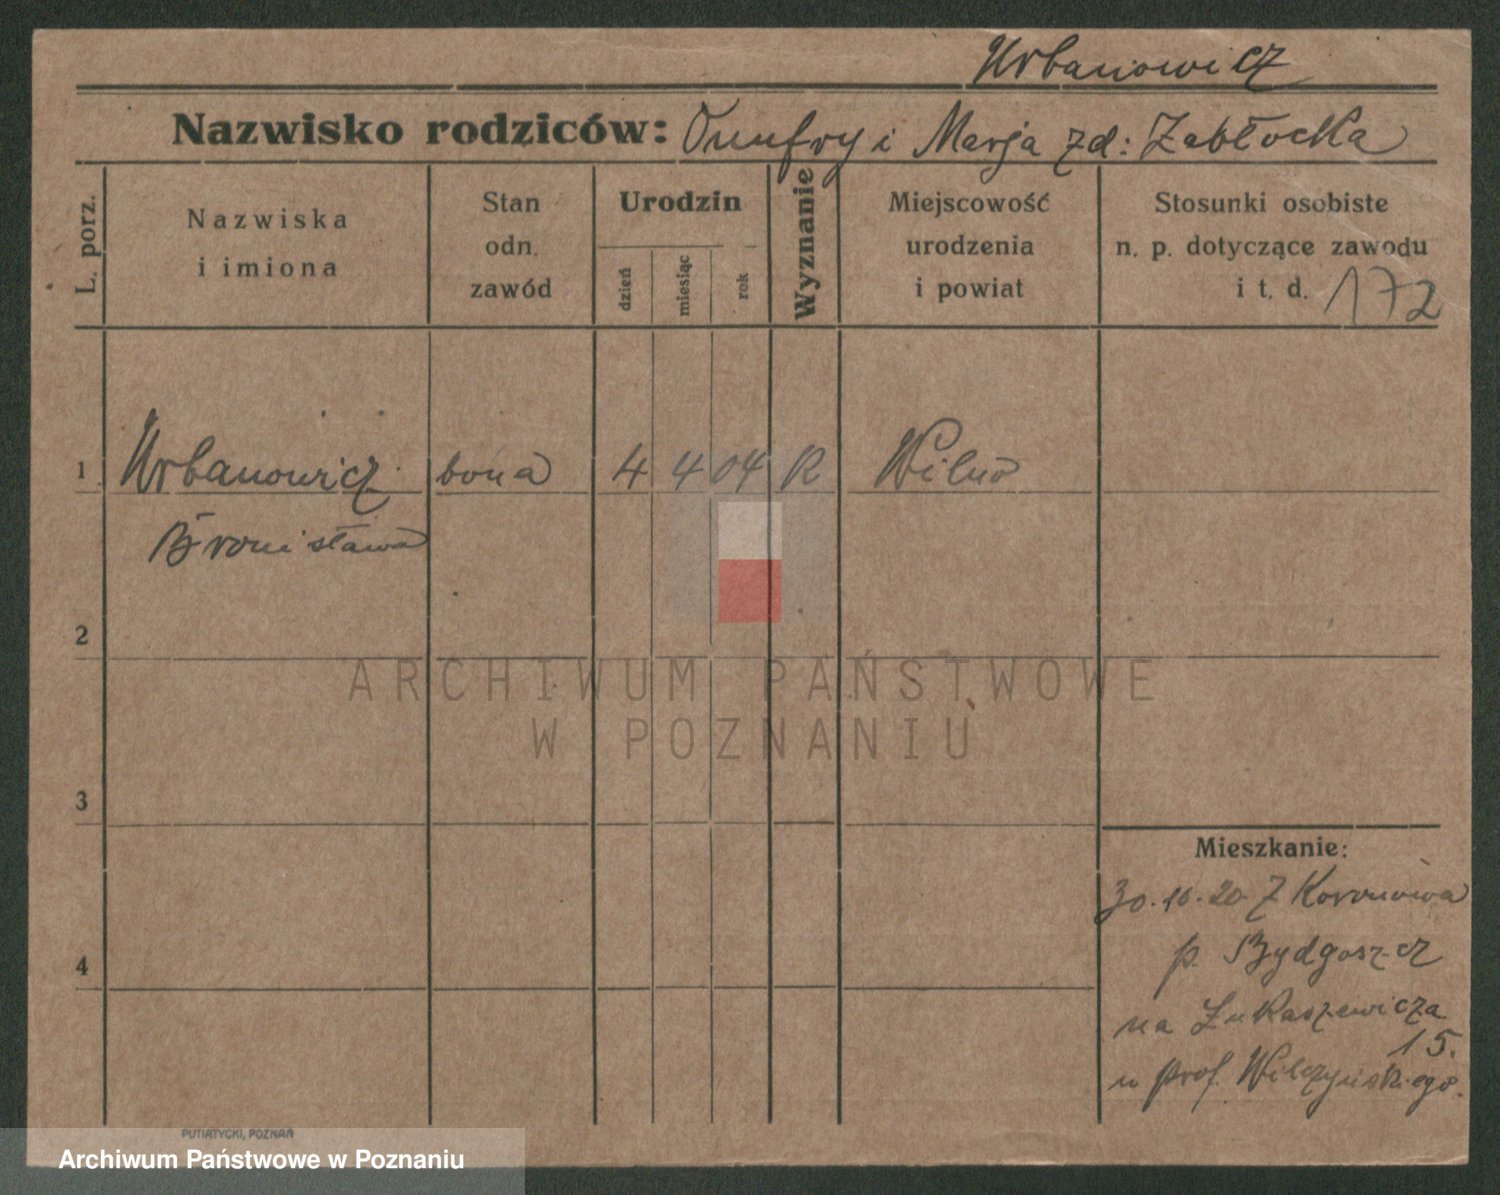 Urbanowicz
Nazwisko rodziców: Onufry i Marja zd: Zabłocka
L. porz.
Nazwiska
i imiona
Stan
odn.
zawód
Urodzin
dzień
miesiąc
rok
Wyznanie
Miejscowość
urodzenia
i powiat
Stosunki osobiste
n. p. dotyczące zawodu
i t. d. 172
1 Urbanowicz bona 4 4 04 R Wilno
Bronisława
2
3
4
Mieszkanie:
30.10.20 Z Koronowa
p. Bydgoszcz
na Łukaszewicza
15.
u prof. Wilczyńskiego.
ARCHIWUM PAŃSTWOWE
W POZNANIU
PUTIATYCKI, POZNAŃ
Archiwum Państwowe w Poznaniu